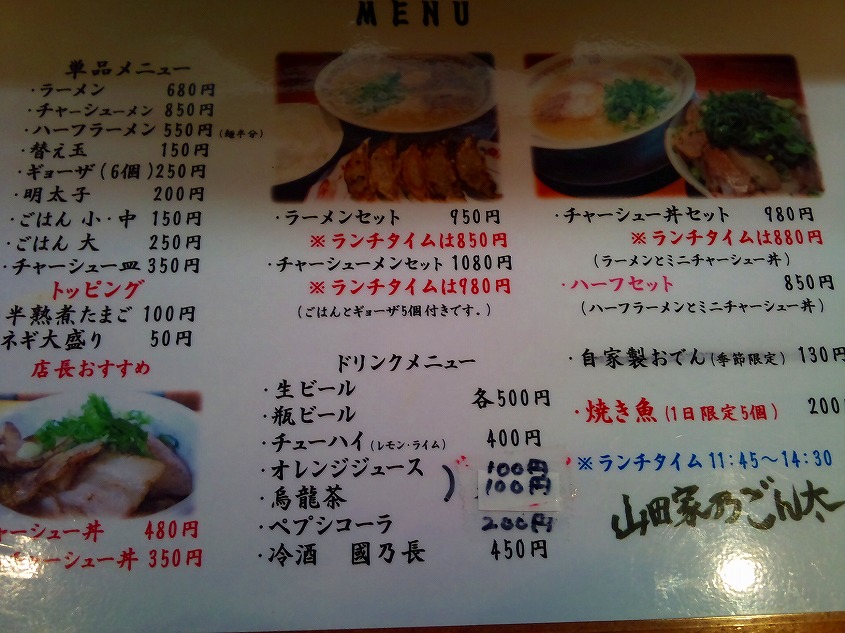 MENU
単品メニュー
・ラーメン 680円
・チャーシューメン 850円
・ハーフラーメン 550円(麺半分)
・替え玉 150円
・ギョーザ(6個)250円
・明太子 200円
・ごはん 小・中 150円
・ごはん 大 250円
・チャーシュー皿 350円
トッピング
半熟煮たまご 100円
ネギ大盛り 50円
店長おすすめ
ャーシュー丼 480円
チャーシュー丼 350円
・ラーメンセット 950円
※ランチタイムは850円
・チャーシューメンセット 1080円
※ランチタイムは980円
(ごはんとギョーザ5個付きです.)
ドリンクメニュー
・生ビール
・瓶ビール
各500円
・チューハイ(レモン・ライム) 400円
・オレンジジュース 100円
・烏龍茶 100円
・ペプシコーラ 200円
・冷酒 國乃長 450円
・チャーシュー丼セット 980円
※ランチタイムは880円
(ラーメンとミニチャーシュー丼)
・ハーフセット 850円
(ハーフラーメンとミニチャーシュー丼)
・自家製おでん(季節限定) 130円
・焼き魚(1日限定5個) 200
※ランチタイム11:45〜14:30
山田家乃ごん太